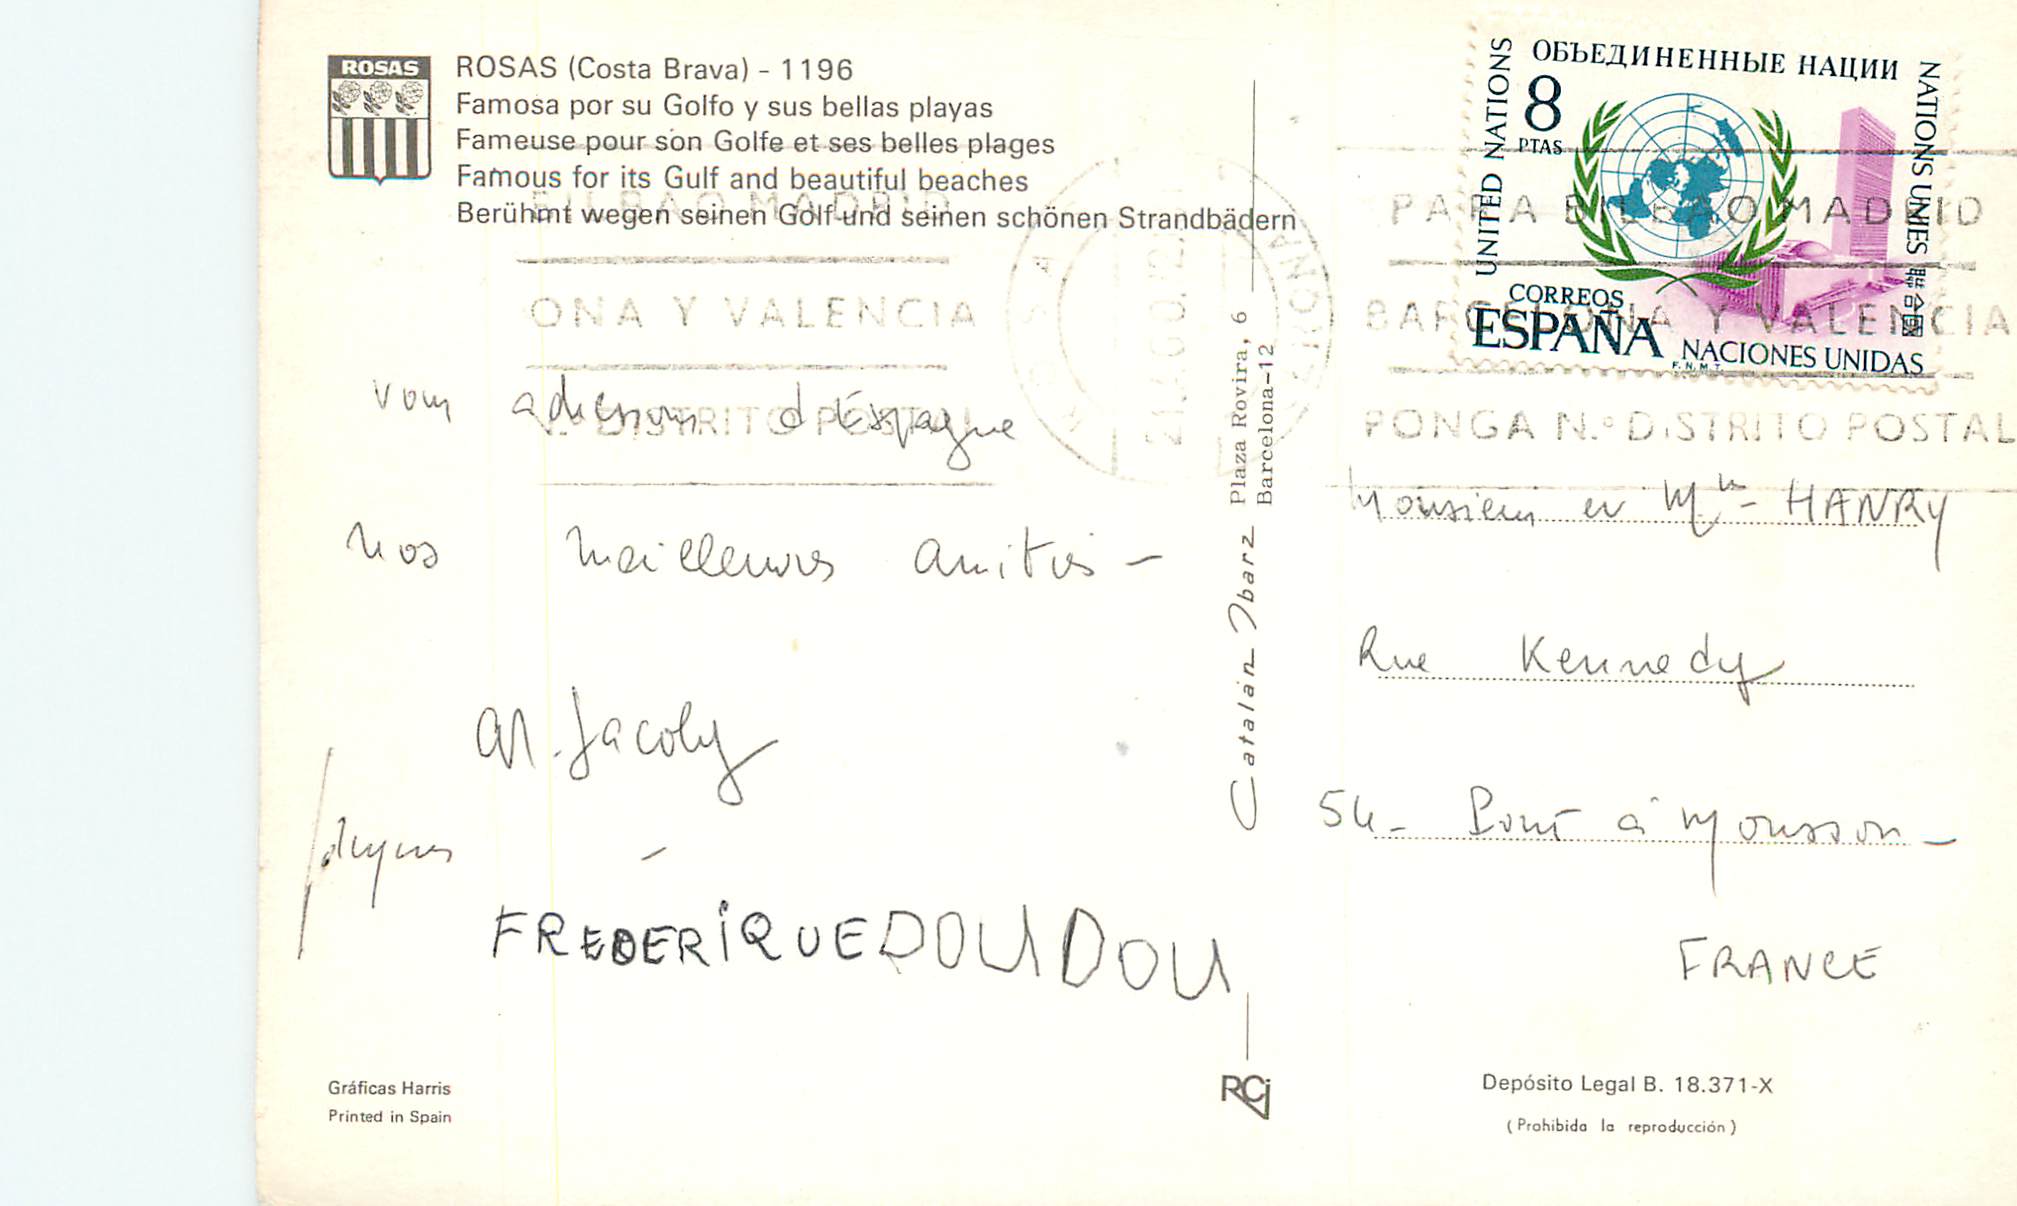 ROSAS
ROSAS (Costa Brava) - 1196
Famosa por su Golfo y sus bellas playas
Fameuse pour son Golfe et ses belles plages
Famous for its Gulf and beautiful beaches
Berühmt wegen seinen Golf und seinen schönen Strandbädern
BILBAO MADRID
ONA Y VALENCIA
DISTRITO POSTAL
vous adressons d'Espagne
nos meilleures amitiés -
M. Jacoby
Jacques
FREDERIQUE DOUDOU
Gráficas Harris
Printed in Spain
Catalán Ibarz Plaza Rovira, 6
Barcelona-12
RCI
ОБЪЕДИНЕННЫЕ НАЦИИ
UNITED NATIONS
8
PTAS
NATIONS UNIES 聯合國
CORREOS
ESPAÑA
NACIONES UNIDAS
F.N.M.T.
PARA BILBAO MADRID
BARCELONA Y VALENCIA
PONGA N.º DISTRITO POSTAL
Monsieur et Mme HANRY
Rue Kennedy
54 - Pont à Mousson -
FRANCE
Depósito Legal B. 18.371-X
(Prohibida la reproducción)